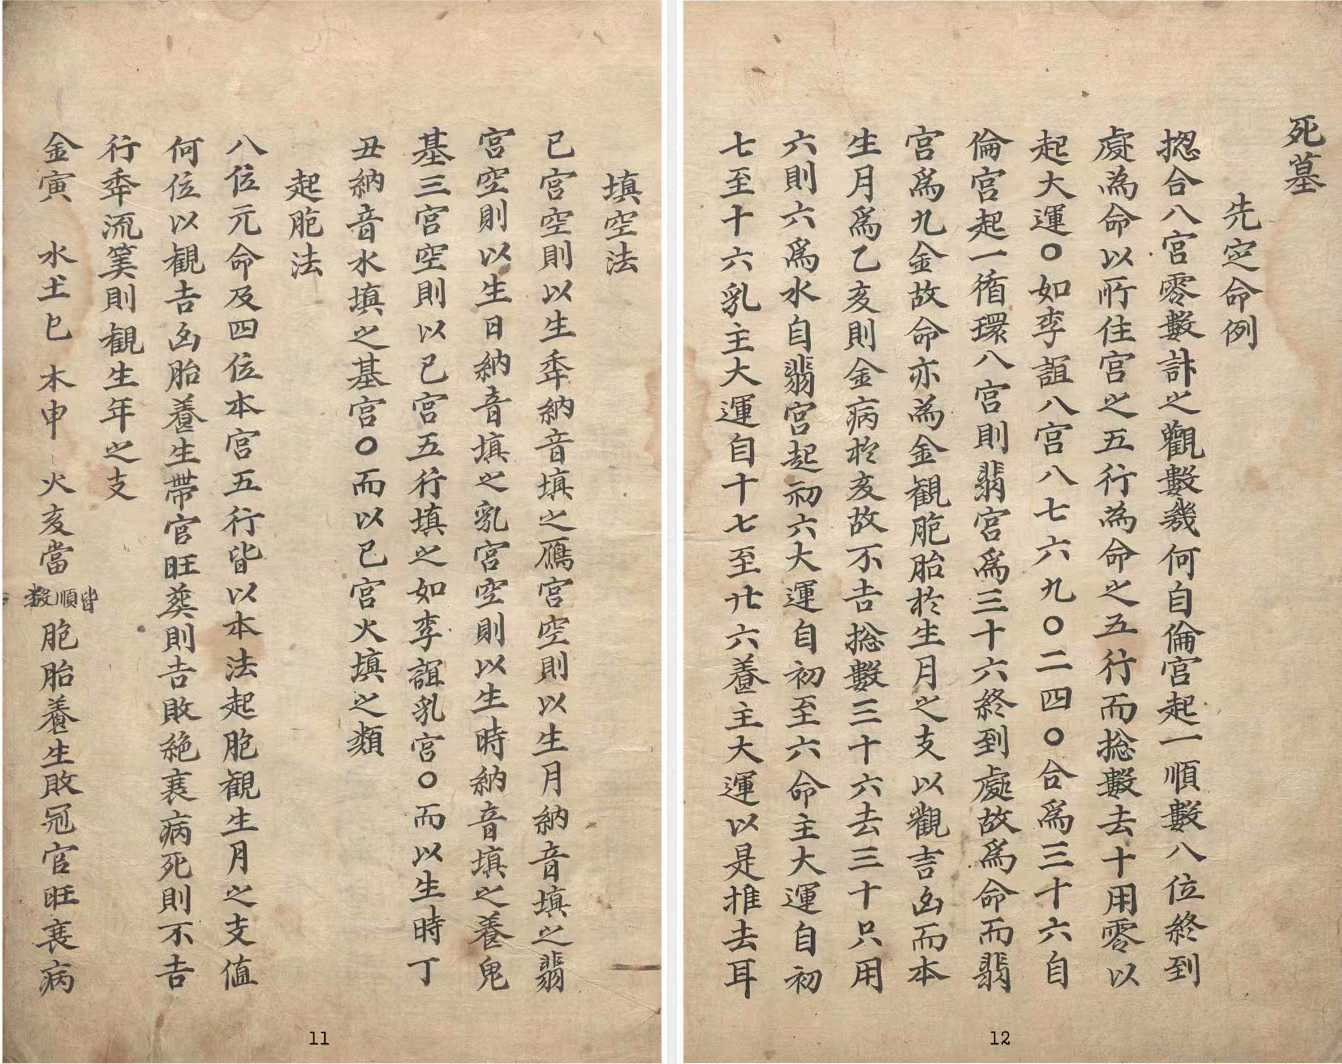 填空法
已宮空則以生秊納音填之鴈宮空則以生月納音填之翡
宮空則以生日納音填之乳宮空則以生時納音填之養鬼
基三宮空則以已宮五行填之如李誼乳宮○而以生時丁
丑納音水填之基宮○而以已宮火填之類
起胞法
八位元命及四位本宮五行皆以本法起胞観生月之支值
何位以観吉凶胎養生帶官旺葬則吉敗絶衰病死則不吉
行秊流筭則観生年之支
金寅 水土巳 木申 火亥當皆順数胞胎養生敗冠官旺衰病
11
死墓
先定命例
揔合八宮零數計之觀數幾何自倫宮起一順數八位終到
處為命以所住宮之五行為命之五行而揔數去十用零以
起大運○如李誼八宮八七六九○二四○合爲三十六自
倫宮起一循環八宮則翡宮爲三十六終到處故爲命而翡
宮爲九金故命亦為金観胞胎於生月之支以觀吉凶而本
生月爲乙亥則金病於亥故不吉揔數三十六去三十只用
六則六爲水自翡宮起初六大運自初至六命主大運自初
七至十六乳主大運自十七至卄六養主大運以是推去耳
12